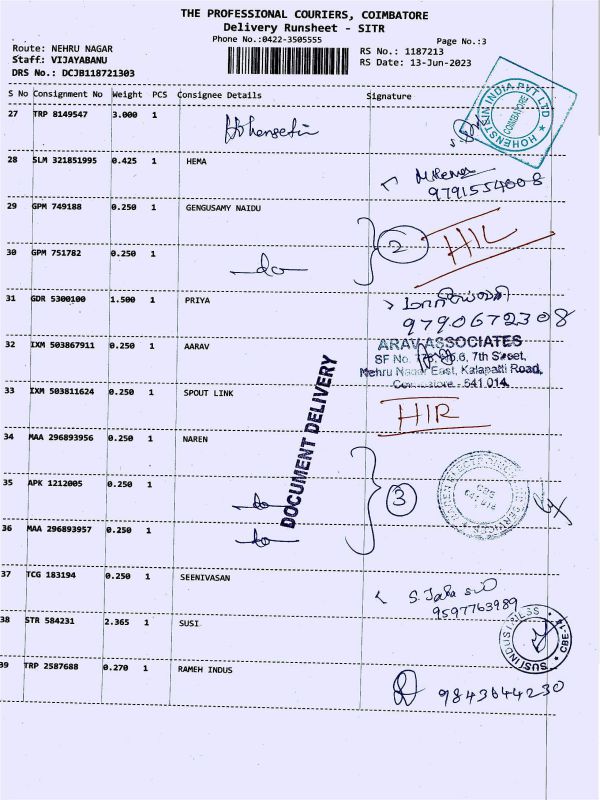 THE PROFESSIONAL COURIERS, COIMBATORE
Delivery Runsheet - SITR
Phone No.:0422-3505555
Page No.:3
Route: NEHRU NAGAR
Staff: VIJAYABANU
DRS No.: DCJB118721303
RS No.: 1187213
RS Date: 13-Jun-2023
S No Consignment No Weight PCS Consignee Details Signature
27 TRP 8149547 3.000 1 Hohenstein
HOHENSTEIN INDIA PVT LTD
COIMBATORE
28 SLM 321851995 0.425 1 HEMA
9791554008
29 GPM 749188 0.250 1 GENGUSAMY NAIDU
2 HIL
30 GPM 751782 0.250 1 do
31 GDR 5300100 1.500 1 PRIYA
9790672308
32 IXM 503867911 0.250 1 AARAV
ARAV ASSOCIATES
SF No. 7th Street,
Nehru Nagar East, Kalapatti Road,
641 014.
33 IXM 503811624 0.250 1 SPOUT LINK
HIR
DOCUMENT DELIVERY
34 MAA 296893956 0.250 1 NAREN
35 APK 1212005 0.250 1 do
3
36 MAA 296893957 0.250 1 do
37 TCG 183194 0.250 1 SEENIVASAN
9597763989
38 STR 584231 2.365 1 SUSI
SUSI INDUSTRIES
CBE-14
39 TRP 2587688 0.270 1 RAMEH INDUS
9843644230